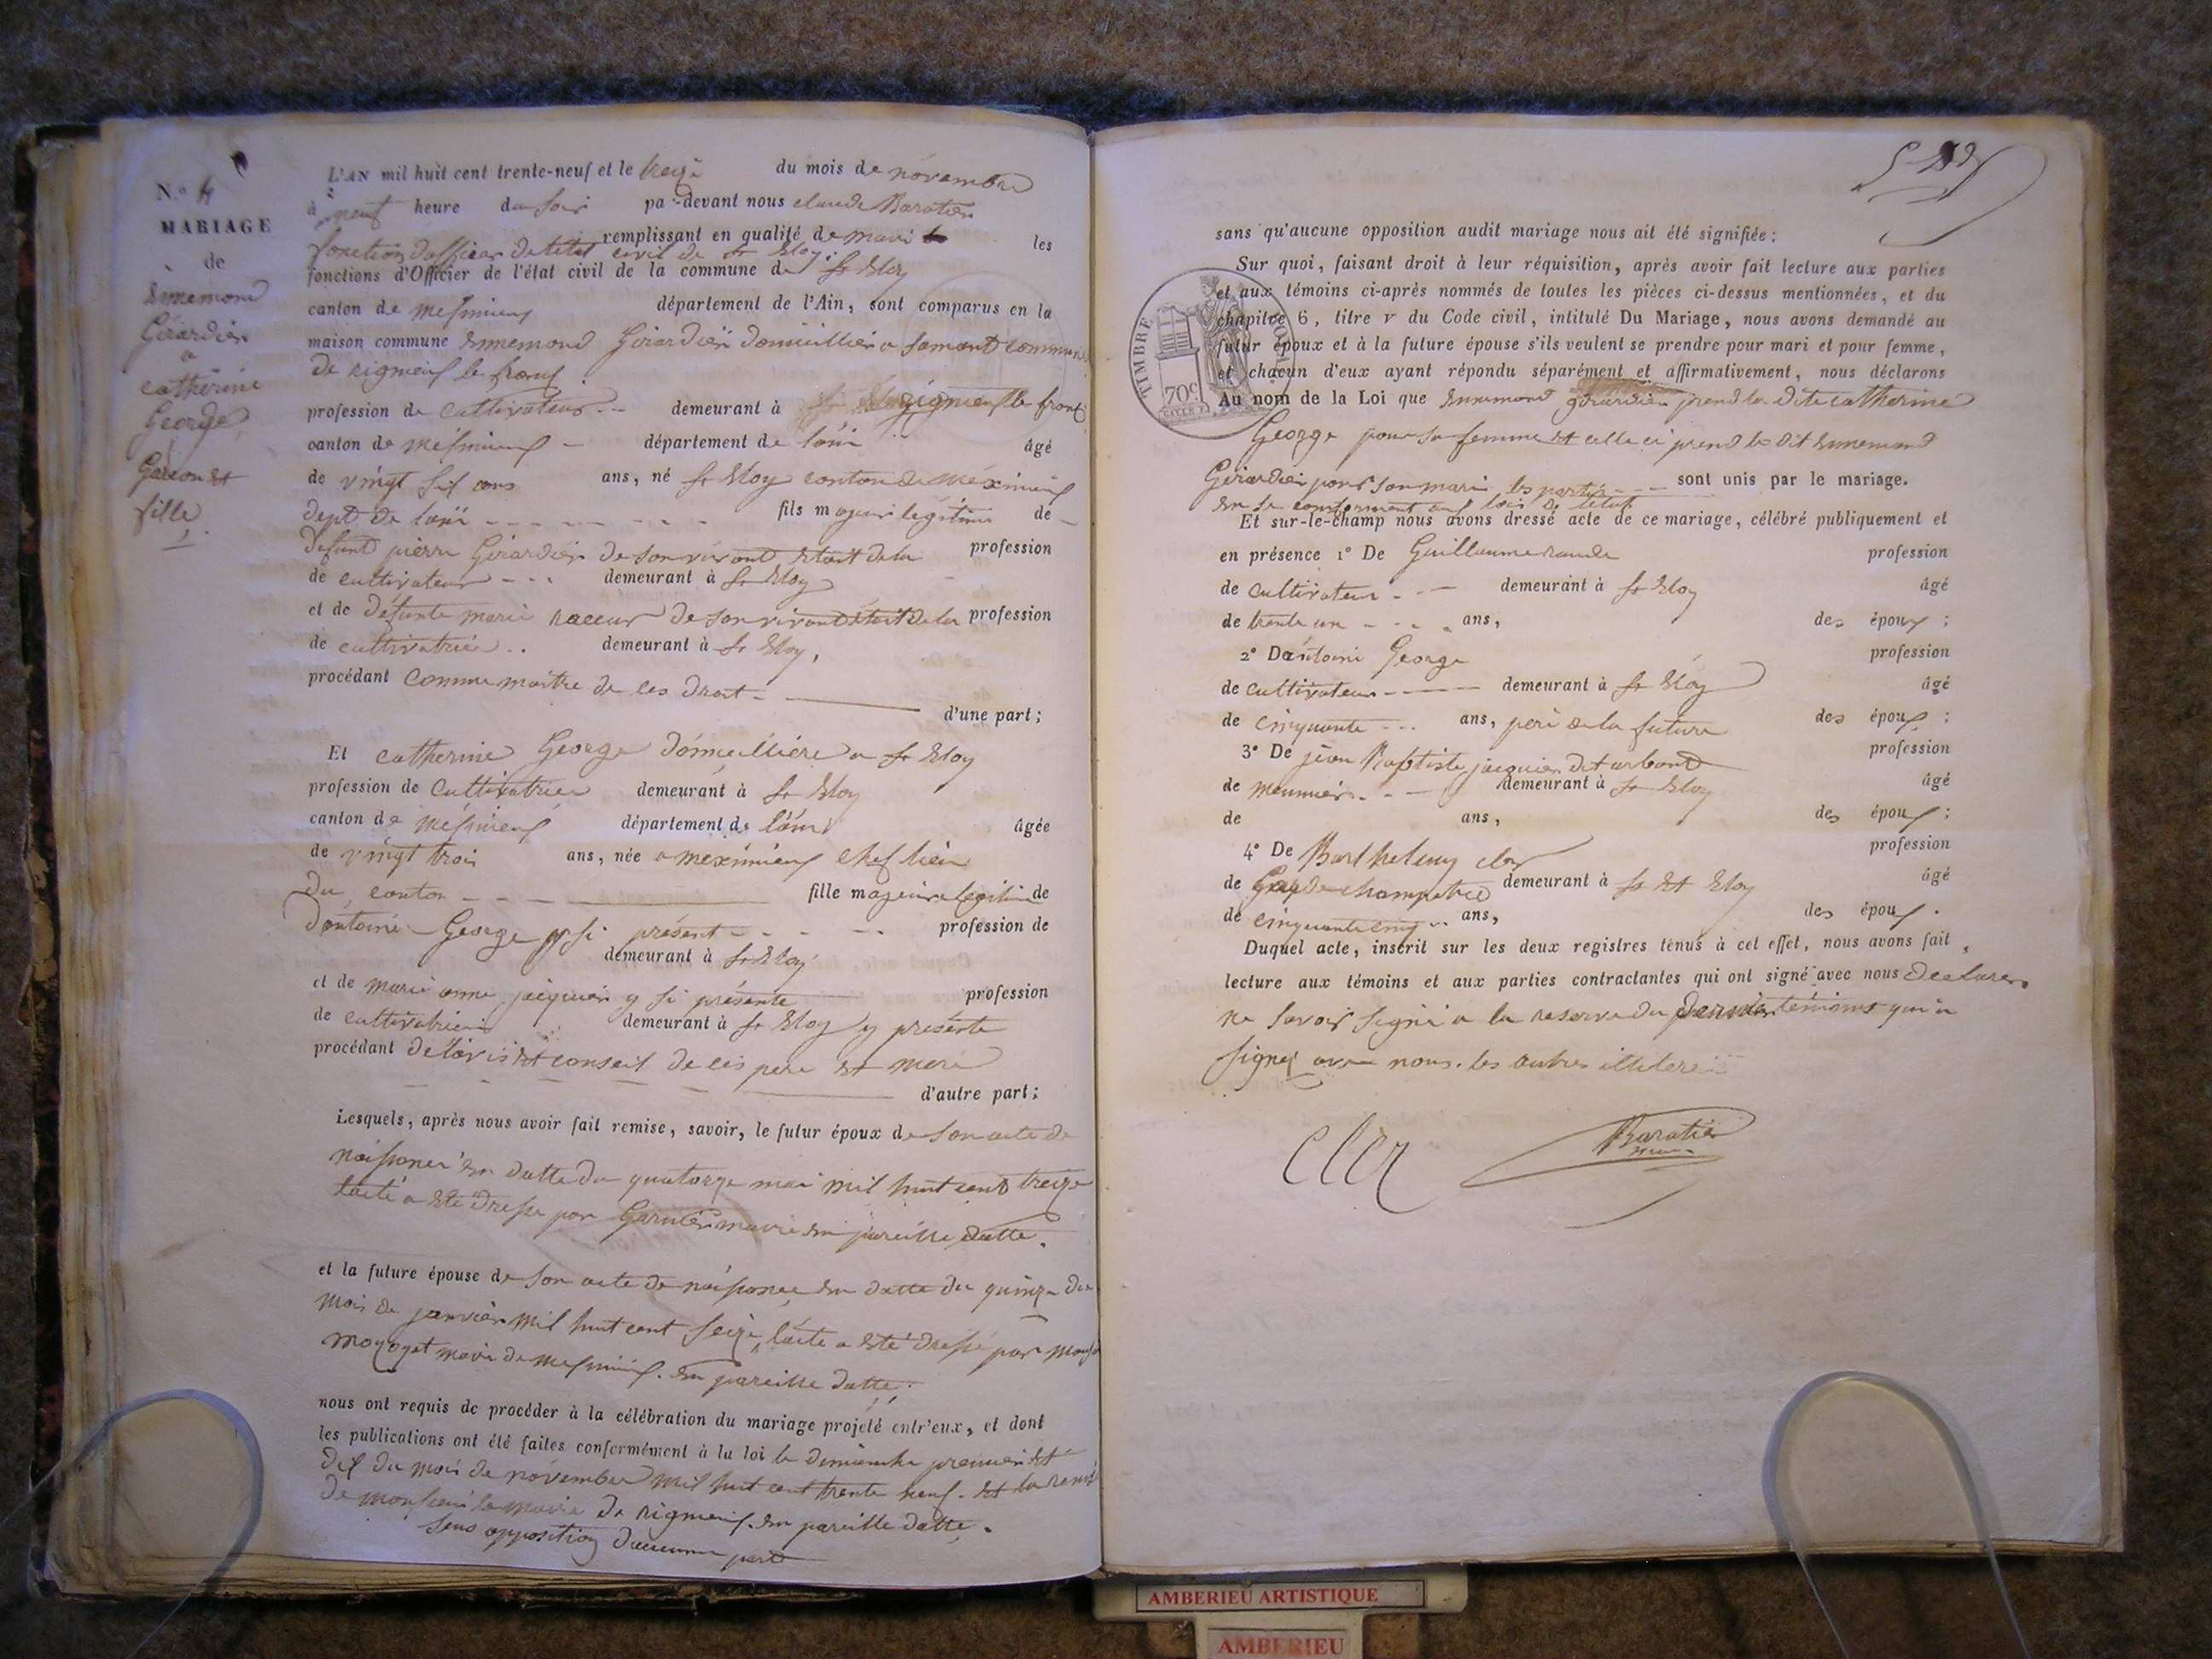 N.º 4
MARIAGE
de
Ennemond
Girardier
a
catherine
George
Garcon et
fille
L'AN mil huit cent trente-neuf et le treize du mois de novembre
à neuf heure du soir par-devant nous claude Baratier
remplissant en qualité de maire les
fonction d'officier de letat civil de St Eloy.
fonctions d'Officier de l'état civil de la commune de St Eloy
canton de meximieux département de l'Ain, sont comparus en la
maison commune Ennemond Girardier domicillier a Samant commune
de rigneux le franc
profession de cultivateur demeurant à rigneux le franc
canton de meximieux département de lain âgé
de vingt six ans ans, né St Eloy canton de meximieux
dept de lain fils majeur légitime de
defunt pierre Girardier de son vivant etait de la profession
de cultivateur demeurant à St Eloy
et de défunte marie raccur de son vivant etait de la profession
de cultivatrice demeurant à St Eloy,
procédant comme maitre de ces droit
d'une part;
Et catherine George domicillière a St Eloy
profession de cultivatrice demeurant à St Eloy
canton de meximieux département de lain âgée
de vingt trois ans, née a meximieux chef lieu
du canton fille majeure legitime de
dantoine George y si présent profession de
demeurant à St Eloy
et de marie anne jacquier y si présente profession
de cultivatrice demeurant à St Eloy y présente
procédant de lavis et conseil de ces pere et mere
d'autre part;
Lesquels, après nous avoir fait remise, savoir, le futur époux de son acte de
naissance en datte du quatorze mai mil huit cent treize
lacte a ete dresse par Garnier maire en pareille datte.
et la future épouse de son acte de naissance en datte du quinze du
mois de janvier mil huit cent seize, lacte a eté dressé par
moyoyat maire de meximieux. En pareille datte.
nous ont requis de procéder à la célébration du mariage projeté entr'eux, et dont
les publications ont été faites conformément à la loi le dimanche premier et
dix du mois de novembre mil huit cent trente neuf. Et la remis
de monsieur le maire de rigneux. En pareille datte.
sens opposition daucune part
sans qu'aucune opposition audit mariage nous ait été signifiée;
Sur quoi, faisant droit à leur réquisition, après avoir fait lecture aux parties
et aux témoins ci-après nommés de toutes les pièces ci-dessus mentionnées, et du
chapitre 6, titre v du Code civil, intitulé Du Mariage, nous avons demandé au
futur époux et à la future épouse s'ils veulent se prendre pour mari et pour femme,
et chacun d'eux ayant répondu séparément et affirmativement, nous déclarons
Au nom de la Loi que Ennemond girardier prend la dite catherine
George pour sa femme et celle ci prend le dit Ennemond
Girardier pour son mari les partis sont unis par le mariage.
en se conformant aux lois de letat
Et sur-le-champ nous avons dressé acte de ce mariage, célébré publiquement et
en présence 1º De Guillaume rande profession
de cultivateur demeurant à St Eloy âgé
de trente un ans, des époux;
2º Dantoine George profession
de cultivateur demeurant à St Eloy âgé
de cinquante ans, pere de la future des époux;
3º De jean Baptiste jacquier dit arband profession
de meunier demeurant à St Eloy âgé
de ans, des époux;
4º De Barthelemy cler profession
de Garde champetre demeurant à St Et Eloy âgé
de cinquante cinq ans, des époux.
Duquel acte, inscrit sur les deux registres tenus à cet effet, nous avons fait
lecture aux témoins et aux parties contractantes qui ont signé avec nous declarer
ne savoir signé a la reserve du dernier témoins qui a
signez avec nous. les autres illiteré
Cler Baratier
maire
TIMBRE ROYAL
70c
AMBERIEU ARTISTIQUE
AMBERIEU